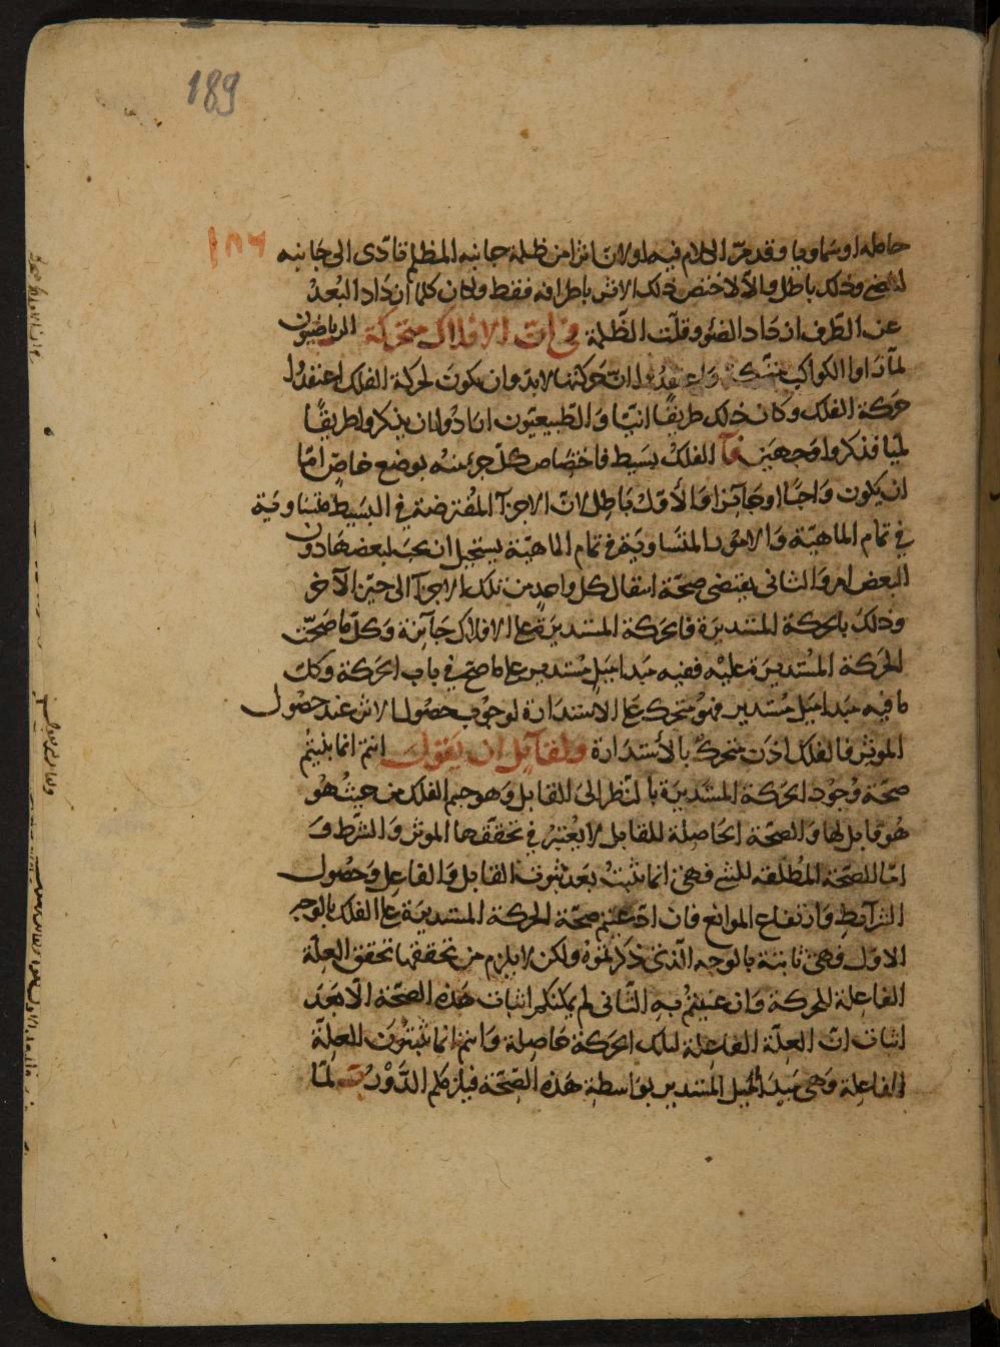 189
١٨٦
حاملها او سماويا وقد مرّ الكلام فيه اولان تاثرا من ظلمة جانبه المظلم تادّى الى جانبه
المضئ وذلك باطل والا لاختص ذلك الاثر باطرافه فقط ولكان كلّما ازداد البُعد
عن الطّرف ازداد الضّوء وقلّت الظّلمة في انّ الافلاك متحرّكة الرياضيّون
لمّا راوا الكواكب واعتقدوا انّ حركتها لابدّ وان يكون لحركة الفلك اعتقدوا
حركة الفلك وكان ذلك طريقًا انيّا والطّبيعيّون ارادوا ان يذكروا طريقًا
لميّا فذكروا وجهين آ الفلك بسيط فاختصاص كلّ جزء منه بوضع خاصّ امّا
ان يكون واجبًا او جايزا والاوّل باطل لانّ الاجزآ المفترضة في البسيط متساوية
في تمام الماهيّة والامور المتساوية في تمام الماهيّة يستحيل ان يجب لبعضها دون
البعض امر والثاني يقتضى صحّة انتقال كل واحد من تلك الاجزآ الى حيّز الآخر
وذلك بالحركة المستديرة فالحركة المستديرة على الافلاك جآئزة وكلّ ما صحّت
الحركة المستديرة عليه ففيه مبدا ميل مستدير على ما صحّ في باب الحركة وكلّ
ما فيه مبدا ميل مستدير فهو متحرك على الاستدارة لوجوب حصول الاثر عند حصول
الموثر فالفلك اذن متحرّك بالاستدارة ولقآئل ان يقول انتم انما بنيتم
صحّة وجود الحركة المستديرة بالنّظر الى القابل وهو جسم الفلك من حيث هو
هو قابل لها والصحّة الحاصلة للقابل لا يُعتبر في تحققها الموثر والشرط و
امّا الصحّة المطلقة للشئ فهى انما تثبت بعد ثبوت القابل والفاعل وحصول
الشرآئط وارتفاع الموانع فان ادّعيتم صحّة الحركة المستديرة على الفلك بالوجه
الاوّل فهى ثابتة بالوجه الّذى ذكرتموه ولكن لا يلزم من تحققها تحقق العلّة
الفاعلة للحركة وان عنيتم به الثّانى لم يمكنكم اثبات هذه الصحّة الّا بعد
اثبات انّ العلّة الفاعلة لتلك الحركة حاصلة وانتم انما تثبتون العلّة
الفاعلة وهى مبدا الميل المستدير بواسطة هذه الصّحّة فيلزمكم الدّور ب لمّا